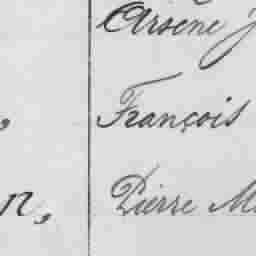 Arsene J
, François
n, Pierre M